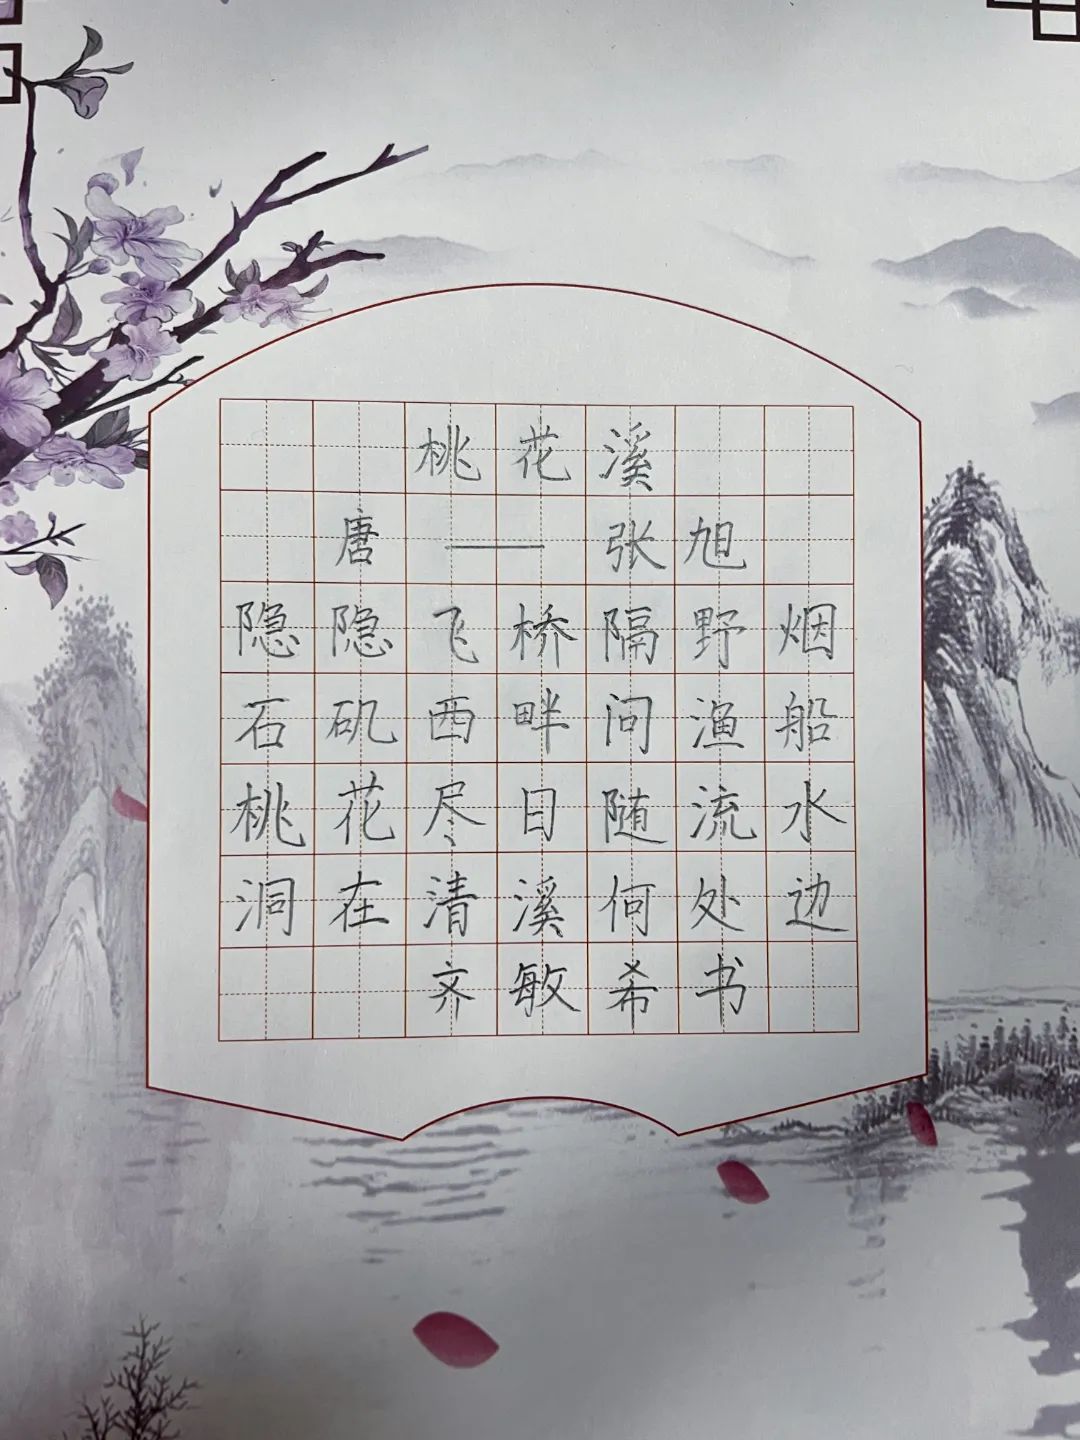 桃花溪
唐——张旭
隐隐飞桥隔野烟
石矶西畔问渔船
桃花尽日随流水
洞在清溪何处边
齐敏希书